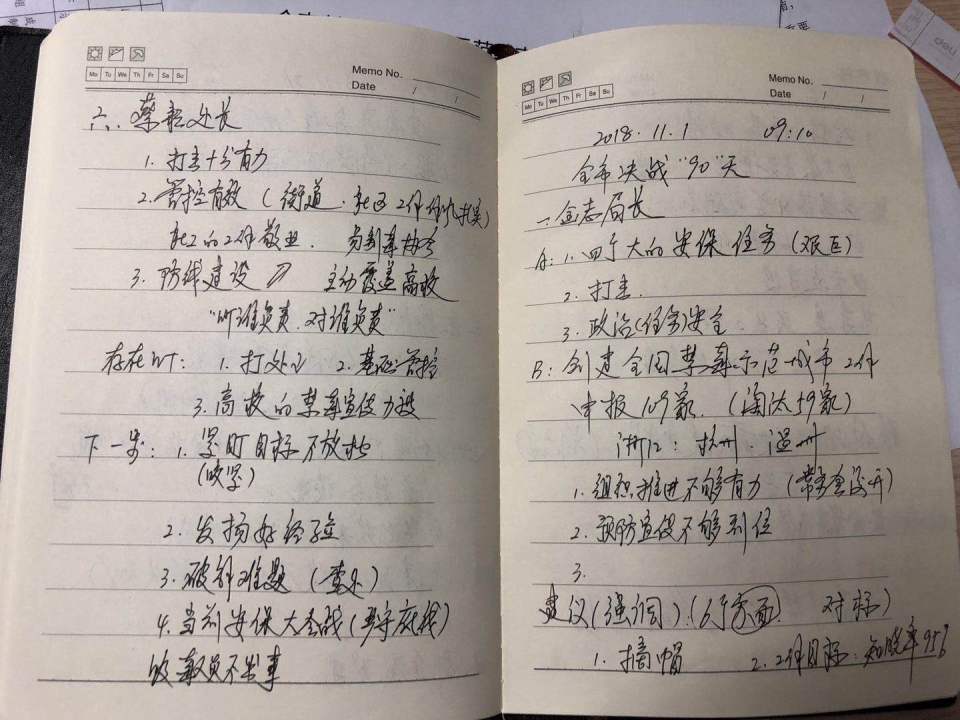 Mo Tu We Th Fr Sa Su
Memo No.
Date / /
六、蔡 处长
1. 打击十分有力
2. 管控有效 (街道、社区工作
社工的工作敬业、
3. 防线建设 主动覆盖高校
"听谁负责、对谁负责"
存在 : 1. 打处 2. 基础管控
3. 高校的禁毒宣传力
下一步: 1. 紧盯目标不放松
(咬紧)
2. 发扬好经验
3. 破解难题 ( )
4. 当前安保大会战 (严守底线)
毒人员不出事
Mo Tu We Th Fr Sa Su
Memo No.
Date / /
2018. 11. 1 09:10
全市决战"90"天
一. 金志局长
A: 1. 四个大的安保任务 (艰巨)
2. 打击.
3. 政治(任务)安全
B: 创建全国禁毒示范城市工作
申报109家. (淘汰59家)
浙江: 杭州. 温州
1. 组织推进不够有力 (常委会没开)
2. 预防宣传不够到位
3.
建议(强调) (6个 面 对标)
1. 摘帽 2. 工作目标: 知晓率95%
deli